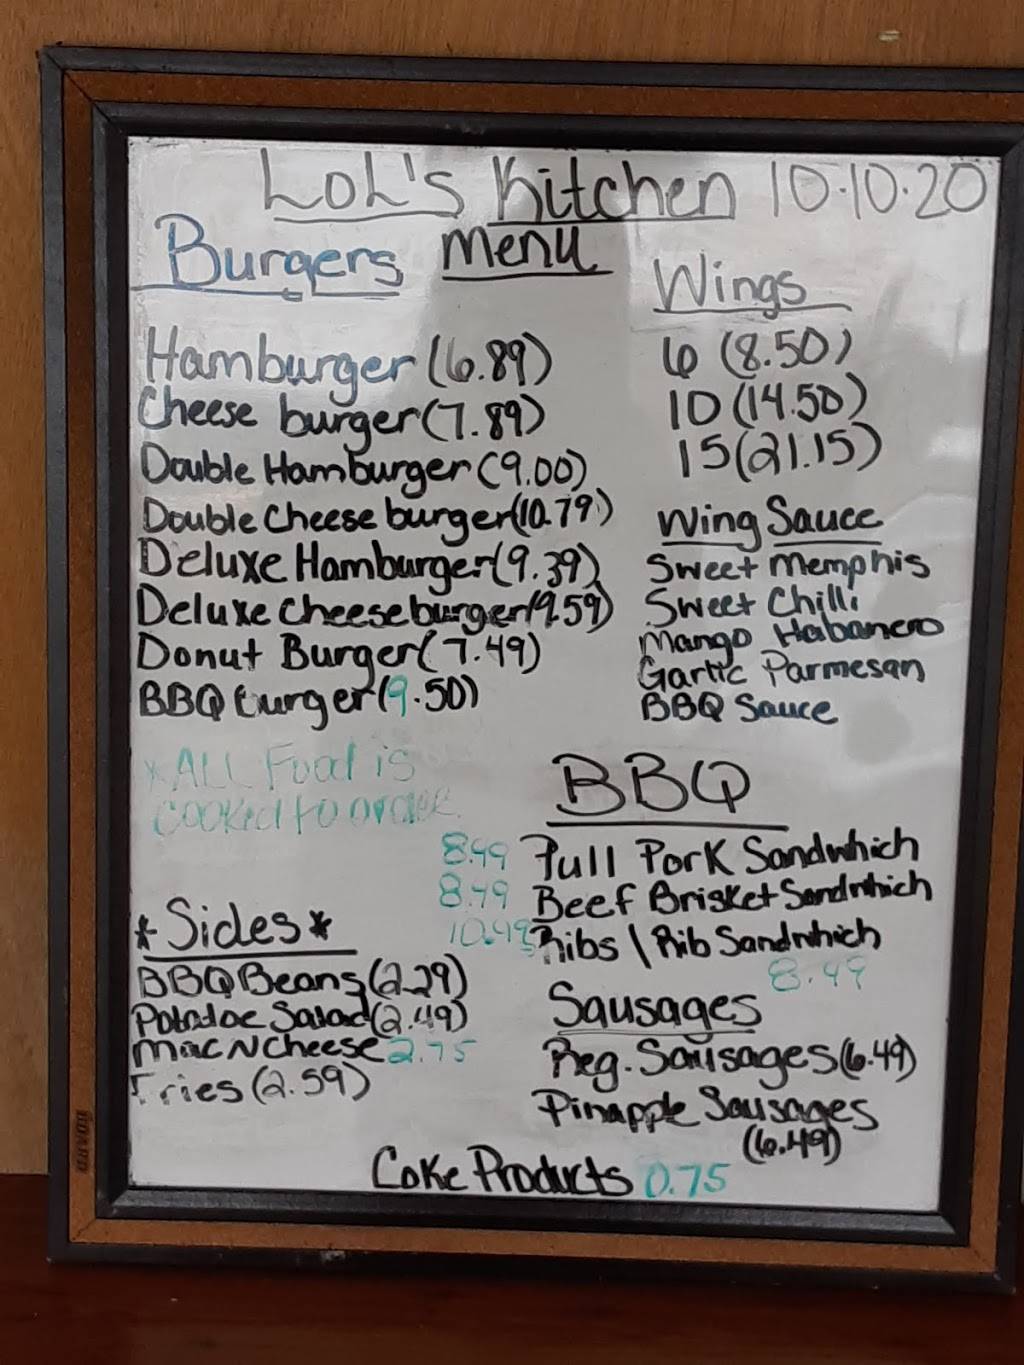 LoL's Kitchen 10.10.20
Menu
Burgers
Hamburger (6.89)
Cheese burger (7.89)
Double Hamburger (9.00)
Double Cheese burger (10.79)
Deluxe Hamburger (9.39)
Deluxe Cheeseburger (9.59)
Donut Burger (7.49)
BBQ burger (9.50)
*ALL Food is
cooked to order.
*Sides*
BBQ Beans (2.29)
Potatoe Salad (2.49)
Mac N Cheese 2.75
Fries (2.59)
Wings
6 (8.50)
10 (14.50)
15 (21.15)
Wing Sauce
Sweet Memphis
Sweet Chilli
Mango Habanero
Garlic Parmesan
BBQ Sauce
BBQ
8.49 Pull Pork Sandwhich
8.49 Beef Brisket Sandwhich
10.49 Ribs | Rib Sandwhich
8.49
Sausages
Reg. Sausages (6.49)
Pinapple Sausages
(6.49)
Coke Products 0.75